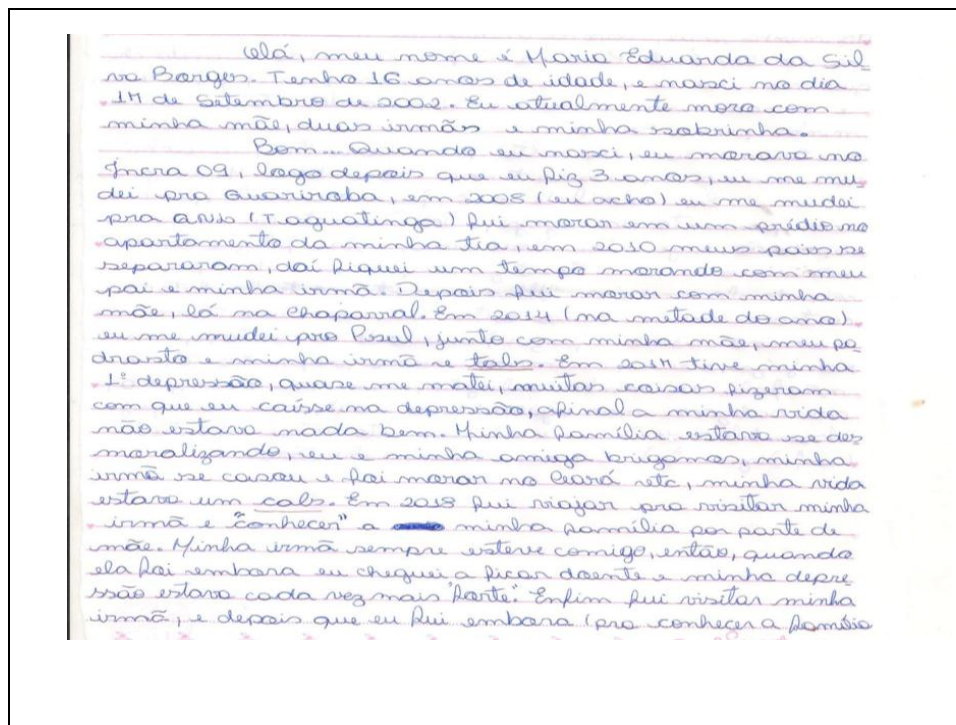 Olá, meu nome é Maria Eduarda da Sil-
va Borges. Tenho 16 anos de idade, e nasci no dia
17 de Setembro de 2002. Eu atualmente moro com
minha mãe, duas irmãs e minha sobrinha.
Bom... Quando eu nasci, eu morava no
Incra 09, logo depois que eu fiz 3 anos, eu me mu-
dei pra Guariroba, em 2008 (eu acho) eu me mudei
pra (Taguatinga) fui morar em um prédio no
apartamento da minha tia, em 2010 meus pais se
separaram, daí fiquei um tempo morando com meu
pai e minha irmã. Depois fui morar com minha
mãe, lá na chaparral. Em 2014 (na metade do ano)
eu me mudei pro Psul, junto com minha mãe, meu pa-
drasto e minha irmã e tals. Em 2017 tive minha
1º depressão, quase me matei, muitas coisas fizeram
com que eu caísse na depressão, afinal a minha vida
não estava nada bem. Minha família estava se des
moralizando, eu e minha amiga brigamos, minha
irmã se casou e foi morar no Ceará etc, minha vida
estava um caos. Em 2018 fui viajar pra visitar minha
irmã e "conhecer" a minha família por parte de
mãe. Minha irmã sempre esteve comigo, então, quando
ela foi embora eu cheguei a ficar doente e minha depre-
ssão estava cada vez mais "forte". Enfim fui visitar minha
irmã, e depois que eu fui embora (pra conhecer a família